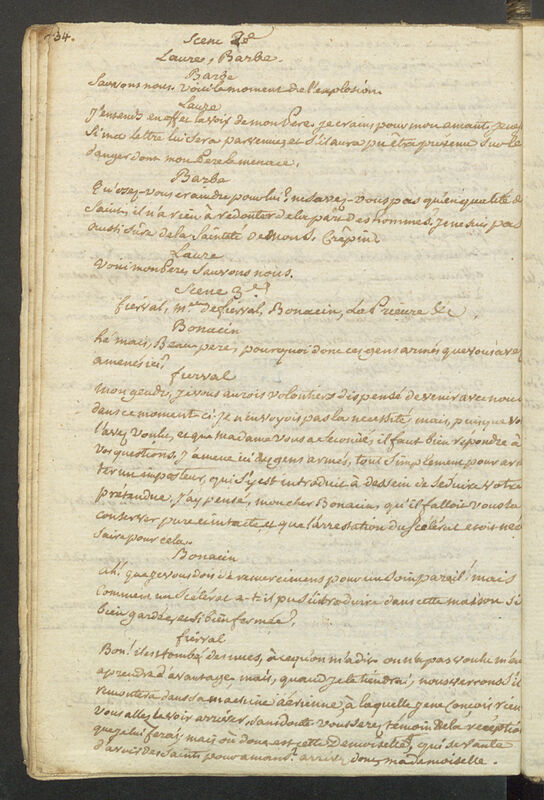 34.
Scene 2e
Laure, Barbe.
Barbe
Sauvons nous. voici le moment de l'explosion.
Laure
J'entends en effet la voix de mon Pere. je crains pour mon amant. je ne sçai
Si ma lettre lui sera parvenue, et s'il aura pu être prevenu sur le
danger dont mon Pere le menace.
Barbe
Qu'osez-vous craindre pour lui? ne savez-vous pas qu'en qualité de
Saint, il n'a rien à redouter de la part des hommes. je ne suis pas
aussi sure de la Sainteté de mons. Crêpin.
Laure
Voici mon Pere, Sauvons nous.
Scene 3.e
fierval, m.me de fierval, Bonacin, La Prieure &c
Bonacin
hé mais, Beaupere, pourquoi donc ces gens armés que vous avez
amenés ici?
fierval
mon gendre, je vous aurois volontiers dispensé de venir avec nous
dans ce moment ci. je n'en voyois pas la necessité, mais, puisque vous
l'avez voulu, et que madame vous a secondé, il faut bien répondre à
vos questions. j'amene ici des gens armés, tout simplement pour arrê
ter un imposteur, qui s'y est introduit à dessein de séduire votre
prétendue. j'ay pensé, mon cher Bonacin, qu'il falloit vous la
conserver pure et intacte et que l'arrestation du Scélérat etoit neces
saire pour cela.
Bonacin
Ah! que je vous dois de remercimens pour un soin pareil! mais
Comment un Scélérat a-t-il pu s'introduire dans cette maison si
bien gardée, et si bien fermée?
fierval
Bon! il est tombé des nues, à ce qu'on m'a dit. on n'a pas voulu m'en
aprendre d'avantage, mais, quand je le tiendrai, nous verrons s'il
remontera dans sa machine aérienne, à laquelle je ne conçois rien
Vous allez le voir arrêter, sans doute vous serez témoin de la réception
que je lui ferai, mais où donc est cette Demoiselle, qui se vante
d'avoir des Saints pour amans? arrivez donc, mademoiselle.